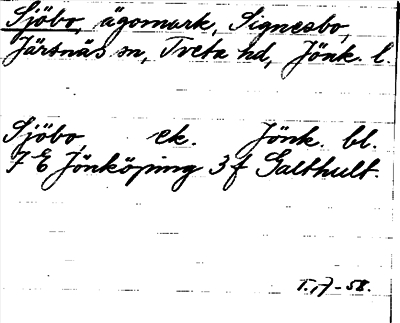 Sjöbo, ägomark, Signesbo,
Järsnäs sn, Tveta hd, Jönk. l.
Sjöbo ek. Jönk. bl.
7 E Jönköping 3 f Galthult.
T. 17-58.